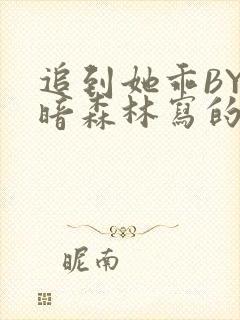 追到她乖BY
暗森林寫的
昵南